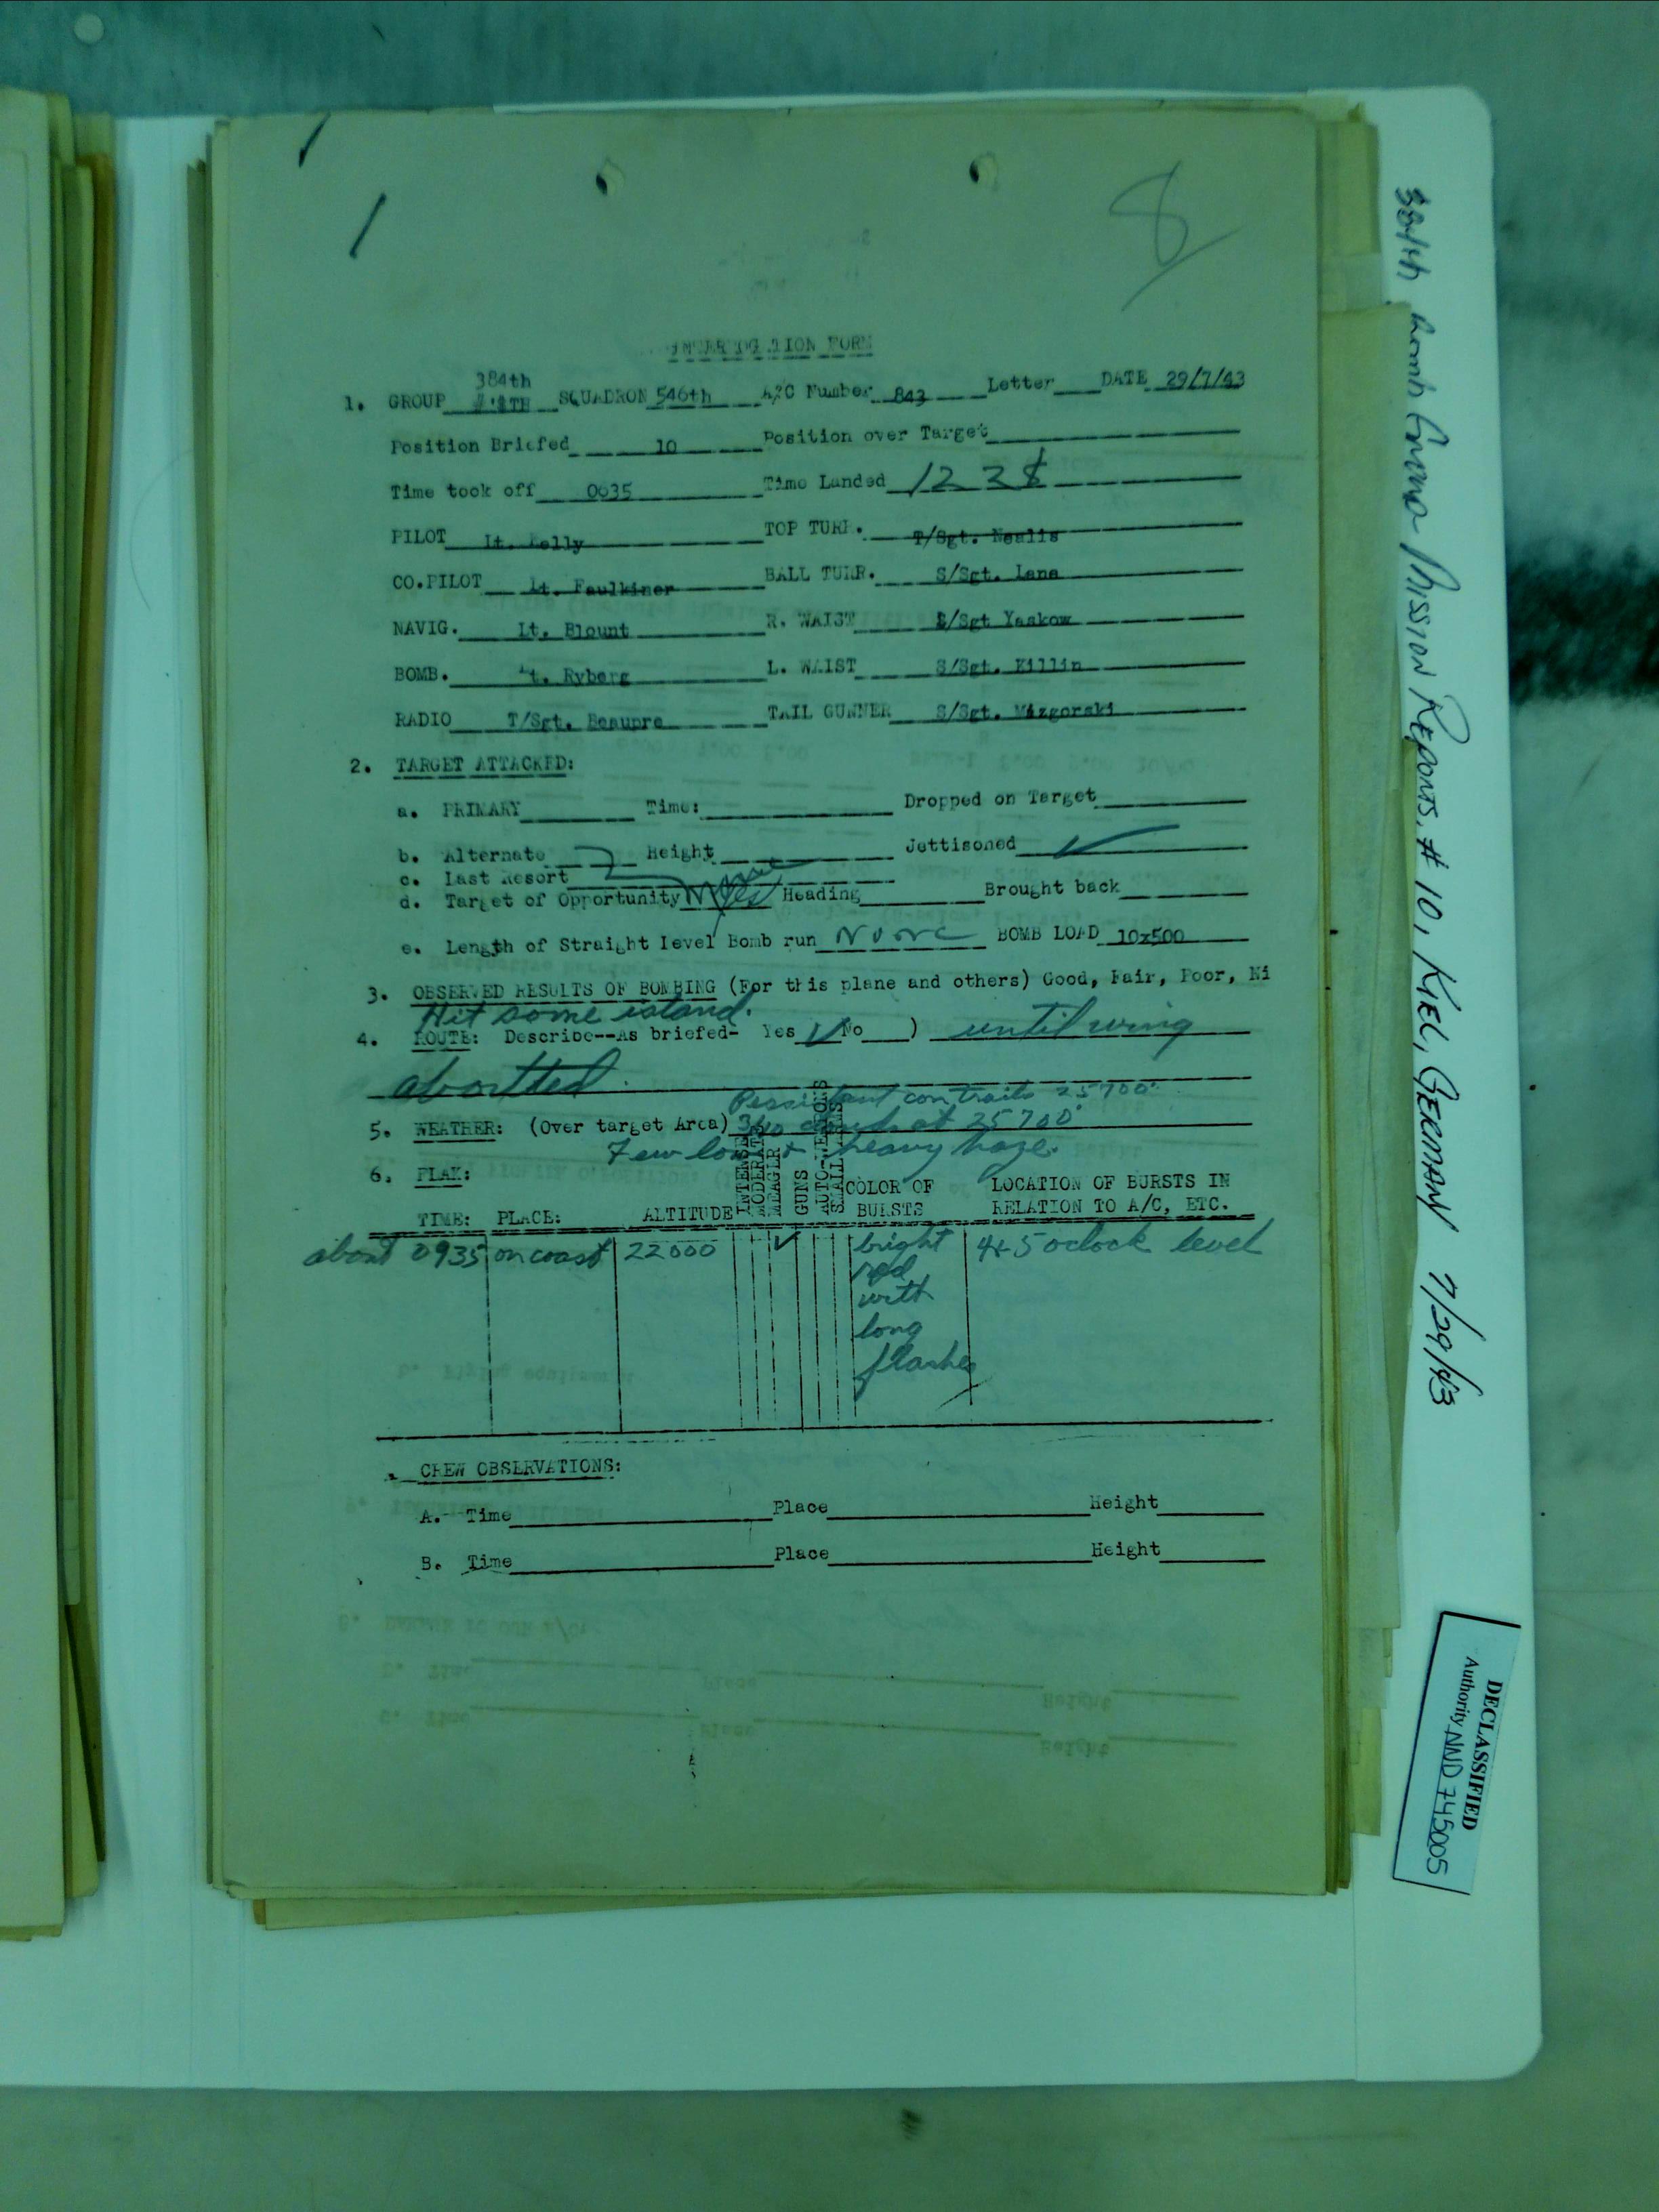 8
INTERROGATION FORM
384th
1. GROUP SQUADRON 546th A/C Number 843 Letter DATE 29/7/43
Position Briefed 10 Position over Target
Time took off 0635 Time Landed 1228
PILOT Lt. Kelly TOP TURR. T/Sgt. Nealis
CO.PILOT Lt. Faulkiner BALL TURR. S/Sgt. Lane
NAVIG. Lt. Blount R. WAIST S/Sgt Yaskow
BOMB. Lt. Ryberg L. WAIST S/Sgt. Killin
RADIO T/Sgt. Beaupre TAIL GUNNER S/Sgt. Mazgorski
2. TARGET ATTACKED:
a. PRIMARY Time: Dropped on Target
b. Alternate Height Jettisoned ✓
c. Last Resort
d. Target of Opportunity Yes Heading Brought back
e. Length of Straight Level Bomb run None BOMB LOAD 10x500
3. OBSERVED RESULTS OF BOMBING (For this plane and others) Good, Fair, Poor, Ni
Hit some island.
4. ROUTE: Describe--As briefed- Yes ✓ No ) until wing
abortted.
Persistant contrails 25700'
5. WEATHER: (Over target Area) clouds at 25700'
Few low + heavy haze.
6. FLAK:
TIME: PLACE: ALTITUDE INTENSE MODERATE MEAGER GUNS AUTO-WEAPONS SMALL ARMS COLOR OF BURSTS LOCATION OF BURSTS IN RELATION TO A/C, ETC.
about 0935 on coast 22000 ✓ bright 4+5 oclock level
red
with
long
flashes
CREW OBSERVATIONS:
A. Time Place Height
B. Time Place Height
384th Bomb Group Mission Reports. # 10, Kiel, German 7/29/43
DECLASSIFIED
Authority NND 745005